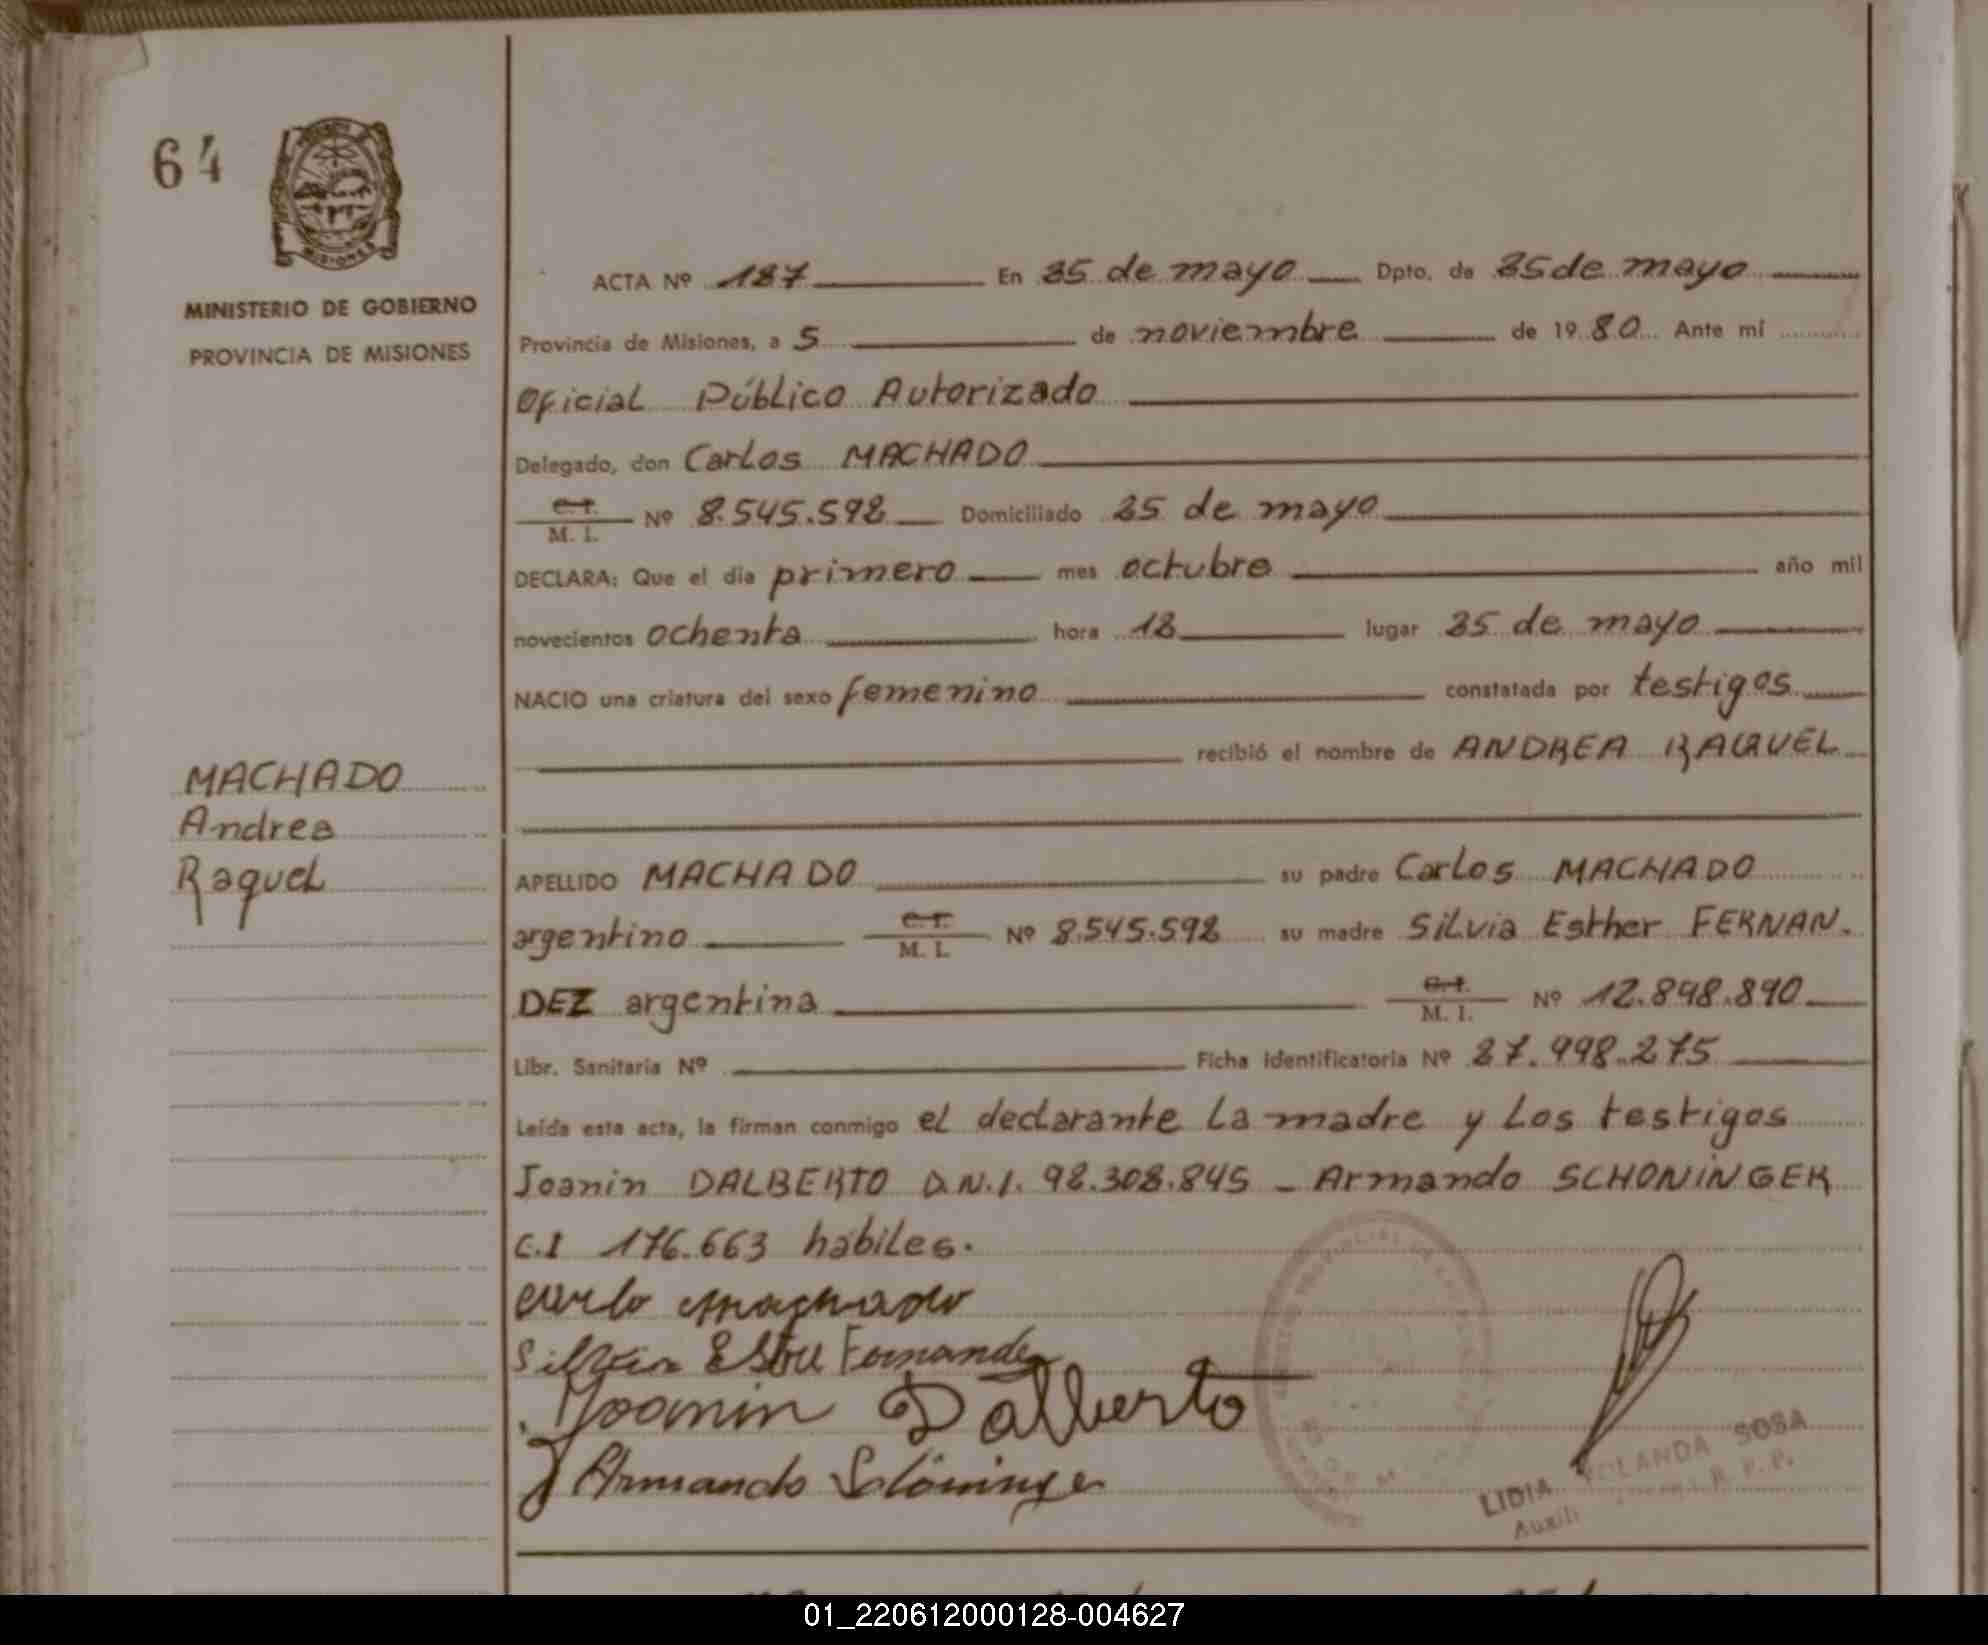 64
MISIONES
MINISTERIO DE GOBIERNO
PROVINCIA DE MISIONES
MACHADO
Andrea
Raquel
ACTA Nº 187 En 25 de mayo Dpto. de 25 de mayo
Provincia de Misiones, a 5 de noviembre de 1980 Ante mí
Oficial Público Autorizado
Delegado, don Carlos MACHADO
C.I. M. I. Nº 8.545.592 Domiciliado 25 de mayo
DECLARA: Que el día primero mes octubre año mil
novecientos ochenta hora 12 lugar 25 de mayo
NACIO una criatura del sexo femenino constatada por testigos
recibió el nombre de ANDREA RAQUEL
APELLIDO MACHADO su padre Carlos MACHADO
argentino C.I. M. I. Nº 8.545.592 su madre Silvia Esther FERNAN.
DEZ argentina C.I. M. I. Nº 12.898.890
Libr. Sanitaria Nº Ficha Identificatoria Nº 27.998.275
Leída esta acta, la firman conmigo el declarante la madre y los testigos
Joanin DALBERTO D.N.I. 92.302.845 - Armando SCHONINGER
C.I 176.663 habiles.
Carlo Machado
Silvia Fernandez
Joanin Dalberto
Armando Schöninger
LIDIA YOLANDA SOSA
01_220612000128-004627